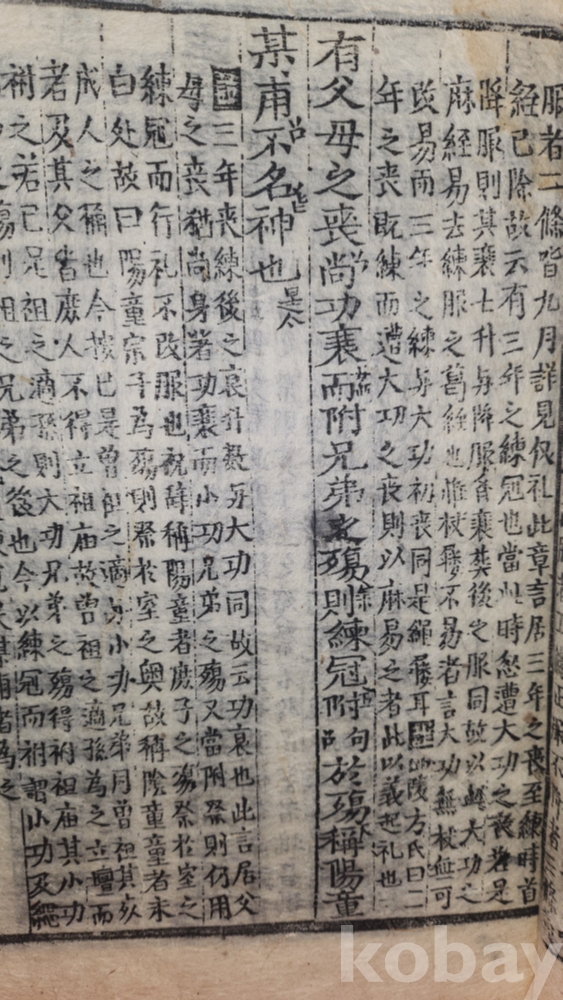 服者二條皆九月詳見儀礼此章言居三年之喪至練時首
絰已除故云有三年之練冠也當此時忽遭大功之喪若是
降服則其衰七升与降服齊衰葬後之服同故以此大功之
麻絰易去練服之葛絰也惟杖屨不易者言大功無杖無可
改易而三年之練与大功初喪同是繩屨耳陵方氏曰二
年之喪既練而遭大功之喪則以麻易之者此以義起礼也
有父母之喪尚功衰而附兄弟之殤則練冠附於殤稱陽童
某甫不名神也
三年喪練後之衰升數与大功同故云功衰也此言居父
母之喪猶尚身著功衰而小功兄弟之殤又當附祭則仍用
練冠而行礼不改服也祝辭稱陽童者庶子之殤祭於室之
白处故曰陽童宗子為殤則祭於室之奧故稱陰童童者未
成人之稱也今按已是曾祖之適与小功兄弟同曾祖其死
者及其父皆庶人不得立祖庙故曾祖之適孫為之立壇而
祔之若已是祖之適孫則大功兄弟之殤得祔祖庙其小功
殤則祖之兄弟之後也今以練冠而祔謂小功及緦
某甫者為之
kobay